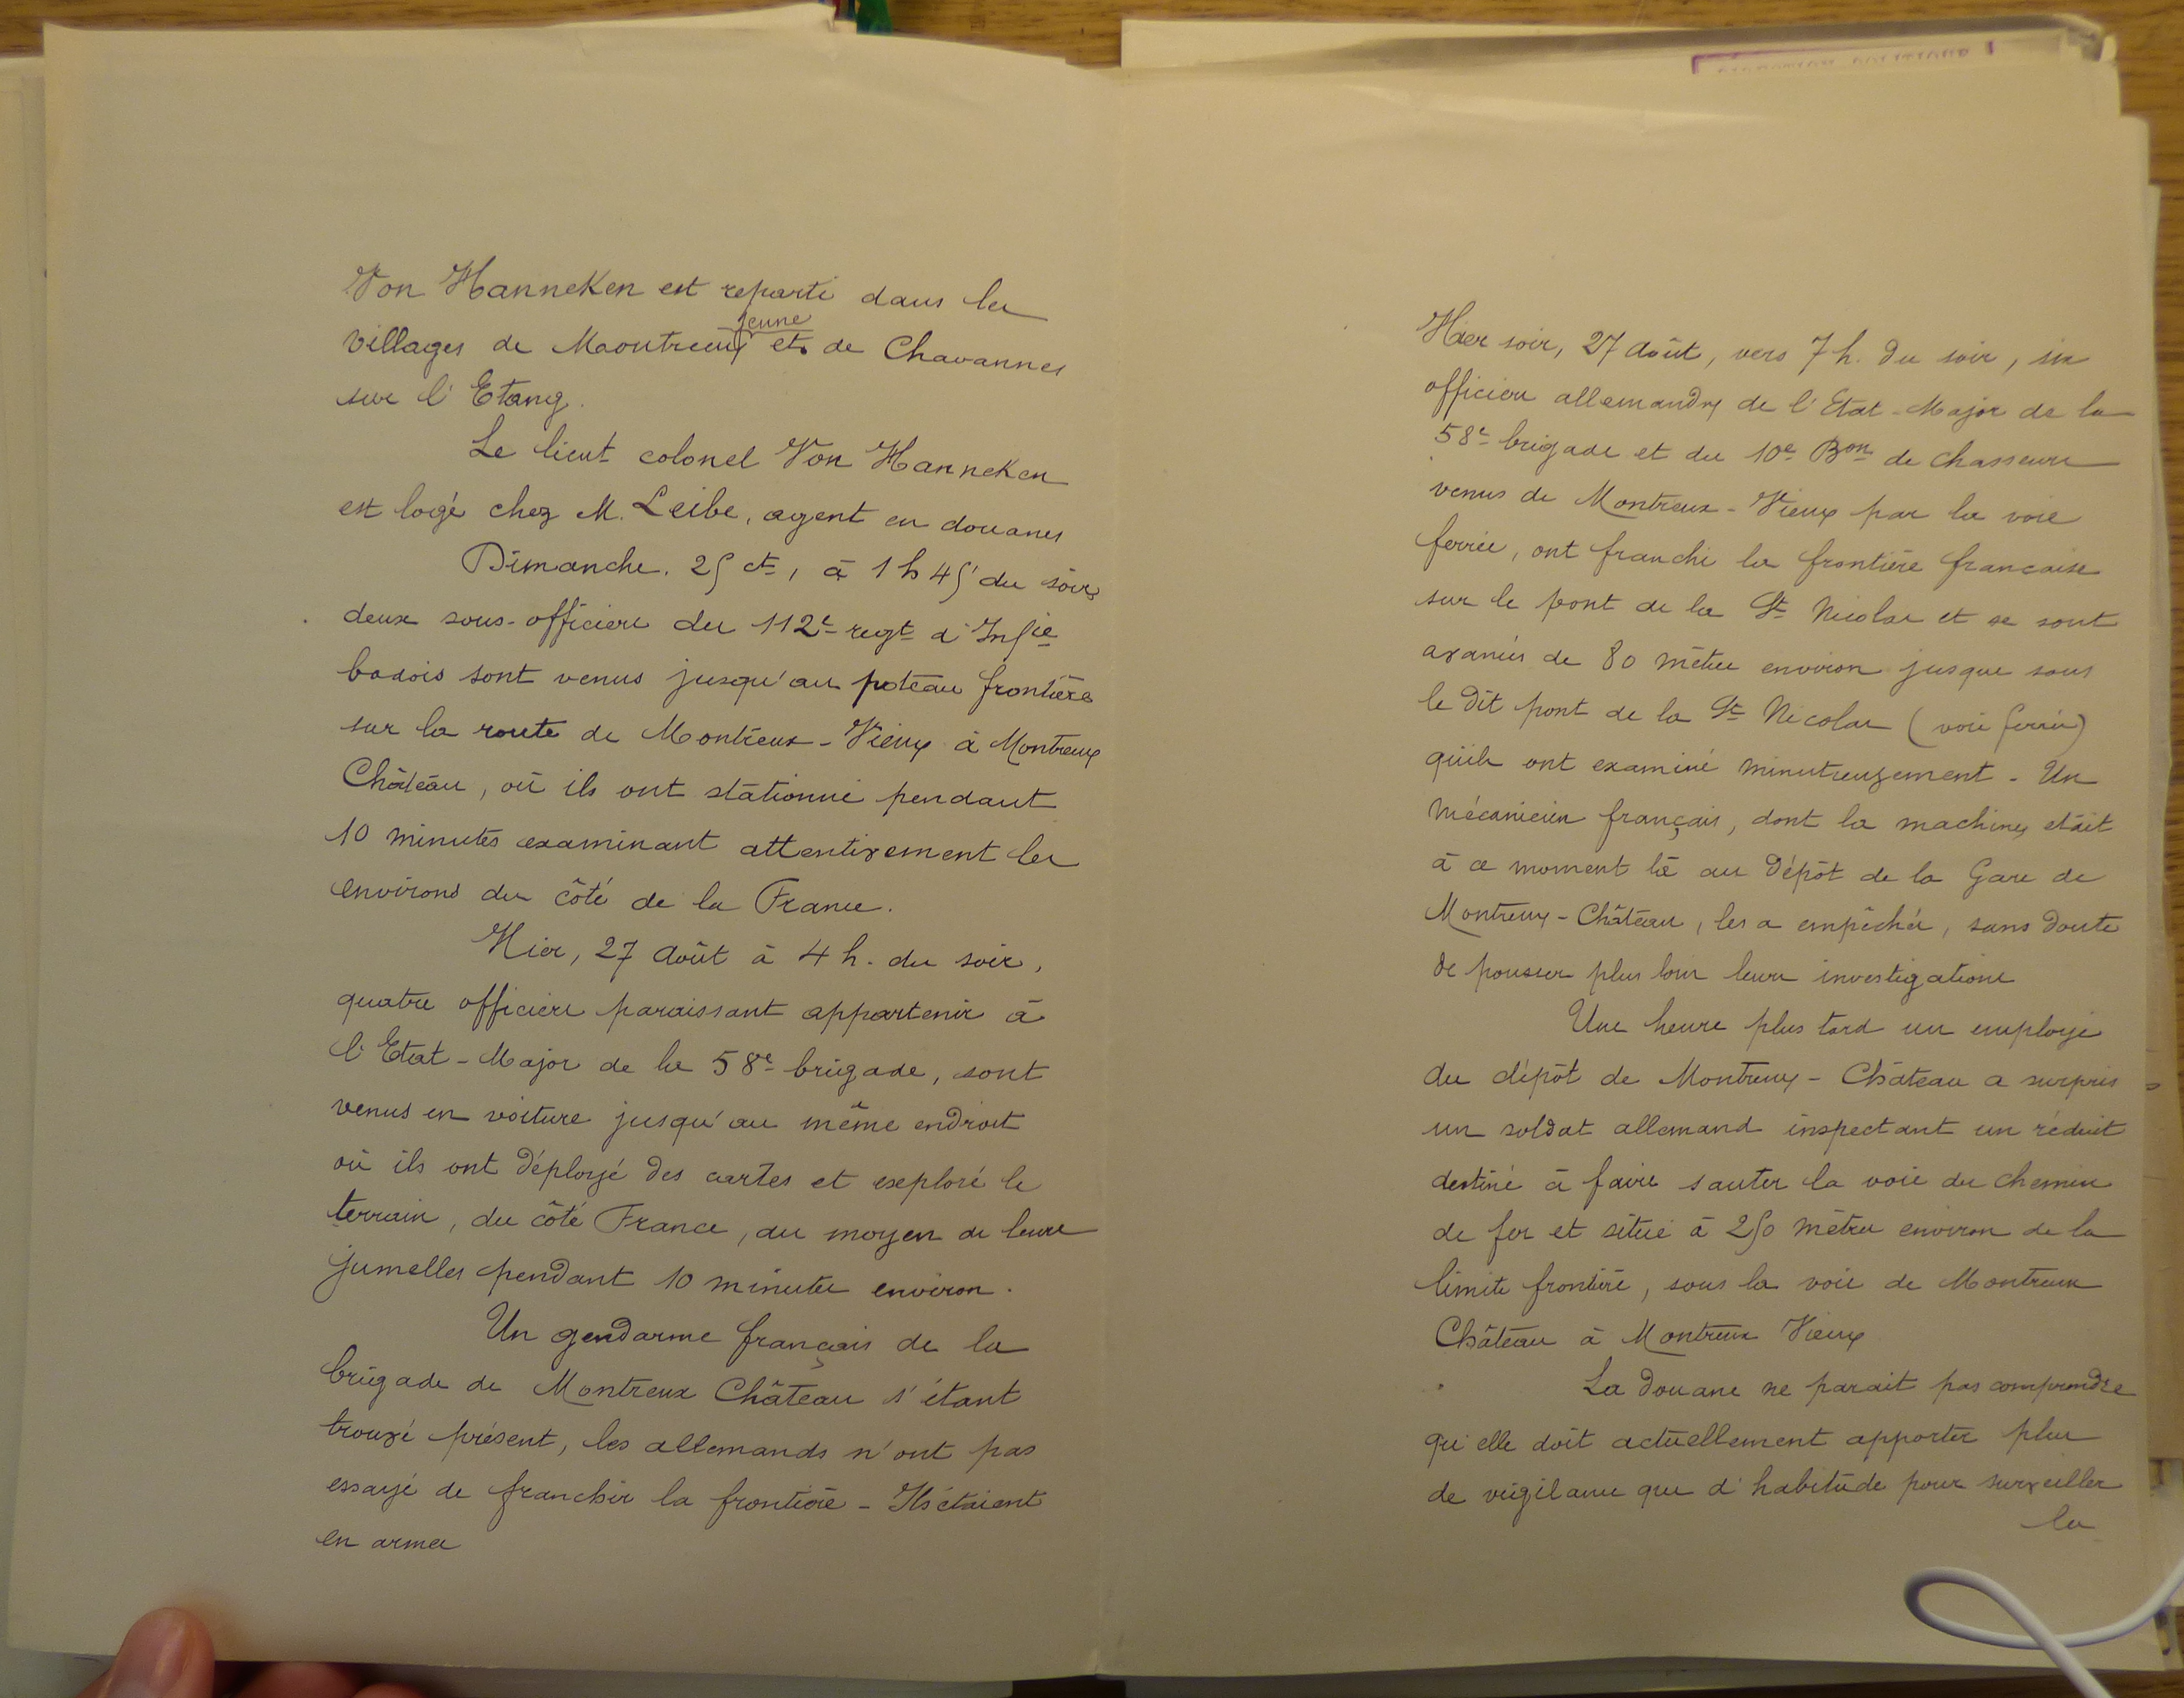 Von Hanneken est reparti dans les
jeune
villages de Maontreux et de Chavannes
sur l'Etang.
Le lieut colonel Von Hanneken
est logé chez M. Leibe, agent en douanes
Dimanche. 25 ct, à 1 h 45' du soir,
deux sous-officiers du 112e regt d'Infie
badois sont venus jusqu'au poteau frontière
sur la route de Montreux-Vieux à Montreux
Château, où ils ont stationné pendant
10 minutes examinant attentivement les
environs du côté de la France.
Hier, 27 Août à 4 h. du soir,
quatre officiers paraissant appartenir à
l'Etat-Major de la 58e brigade, sont
venus en voiture jusqu'au même endroit
où ils ont déployé des cartes et exploré le
terrain, du côté France, au moyen de leurs
jumelles pendant 10 minutes environ.
Un gendarme français de la
brigade de Montreux Château s'étant
trouvé présent, les allemands n'ont pas
essayé de franchir la frontière - Ils étaient
en armes
Hier soir, 27 Août, vers 7 h. du soir, six
officiers allemands de l'Etat-Major de la
58e brigade et du 10e Bon de Chasseurs
venus de Montreux-Vieux par la voie
ferrée, ont franchi la frontière française
sur le pont de la St Nicolas et se sont
avancés de 80 mètres environ jusque sous
le dit pont de la St Nicolas (voie ferrée)
qu'ils ont examiné minutieusement - Un
mécanicien français, dont la machine était
à ce moment là au dépôt de la Gare de
Montreux-Château, les a empêchés, sans doute
de pousser plus loin leurs investigations
Une heure plus tard un employé
du dépôt de Montreux-Château a surpris
un soldat allemand inspectant un réduit
destiné à faire sauter la voie du chemin
de fer et situé à 250 mètres environ de la
limite frontière, sous la voie de Montreux
Château à Montreux Vieux
La douane ne parait pas comprendre
qu'elle doit actuellement apporter plus
de vigilance que d'habitude pour surveiller
la